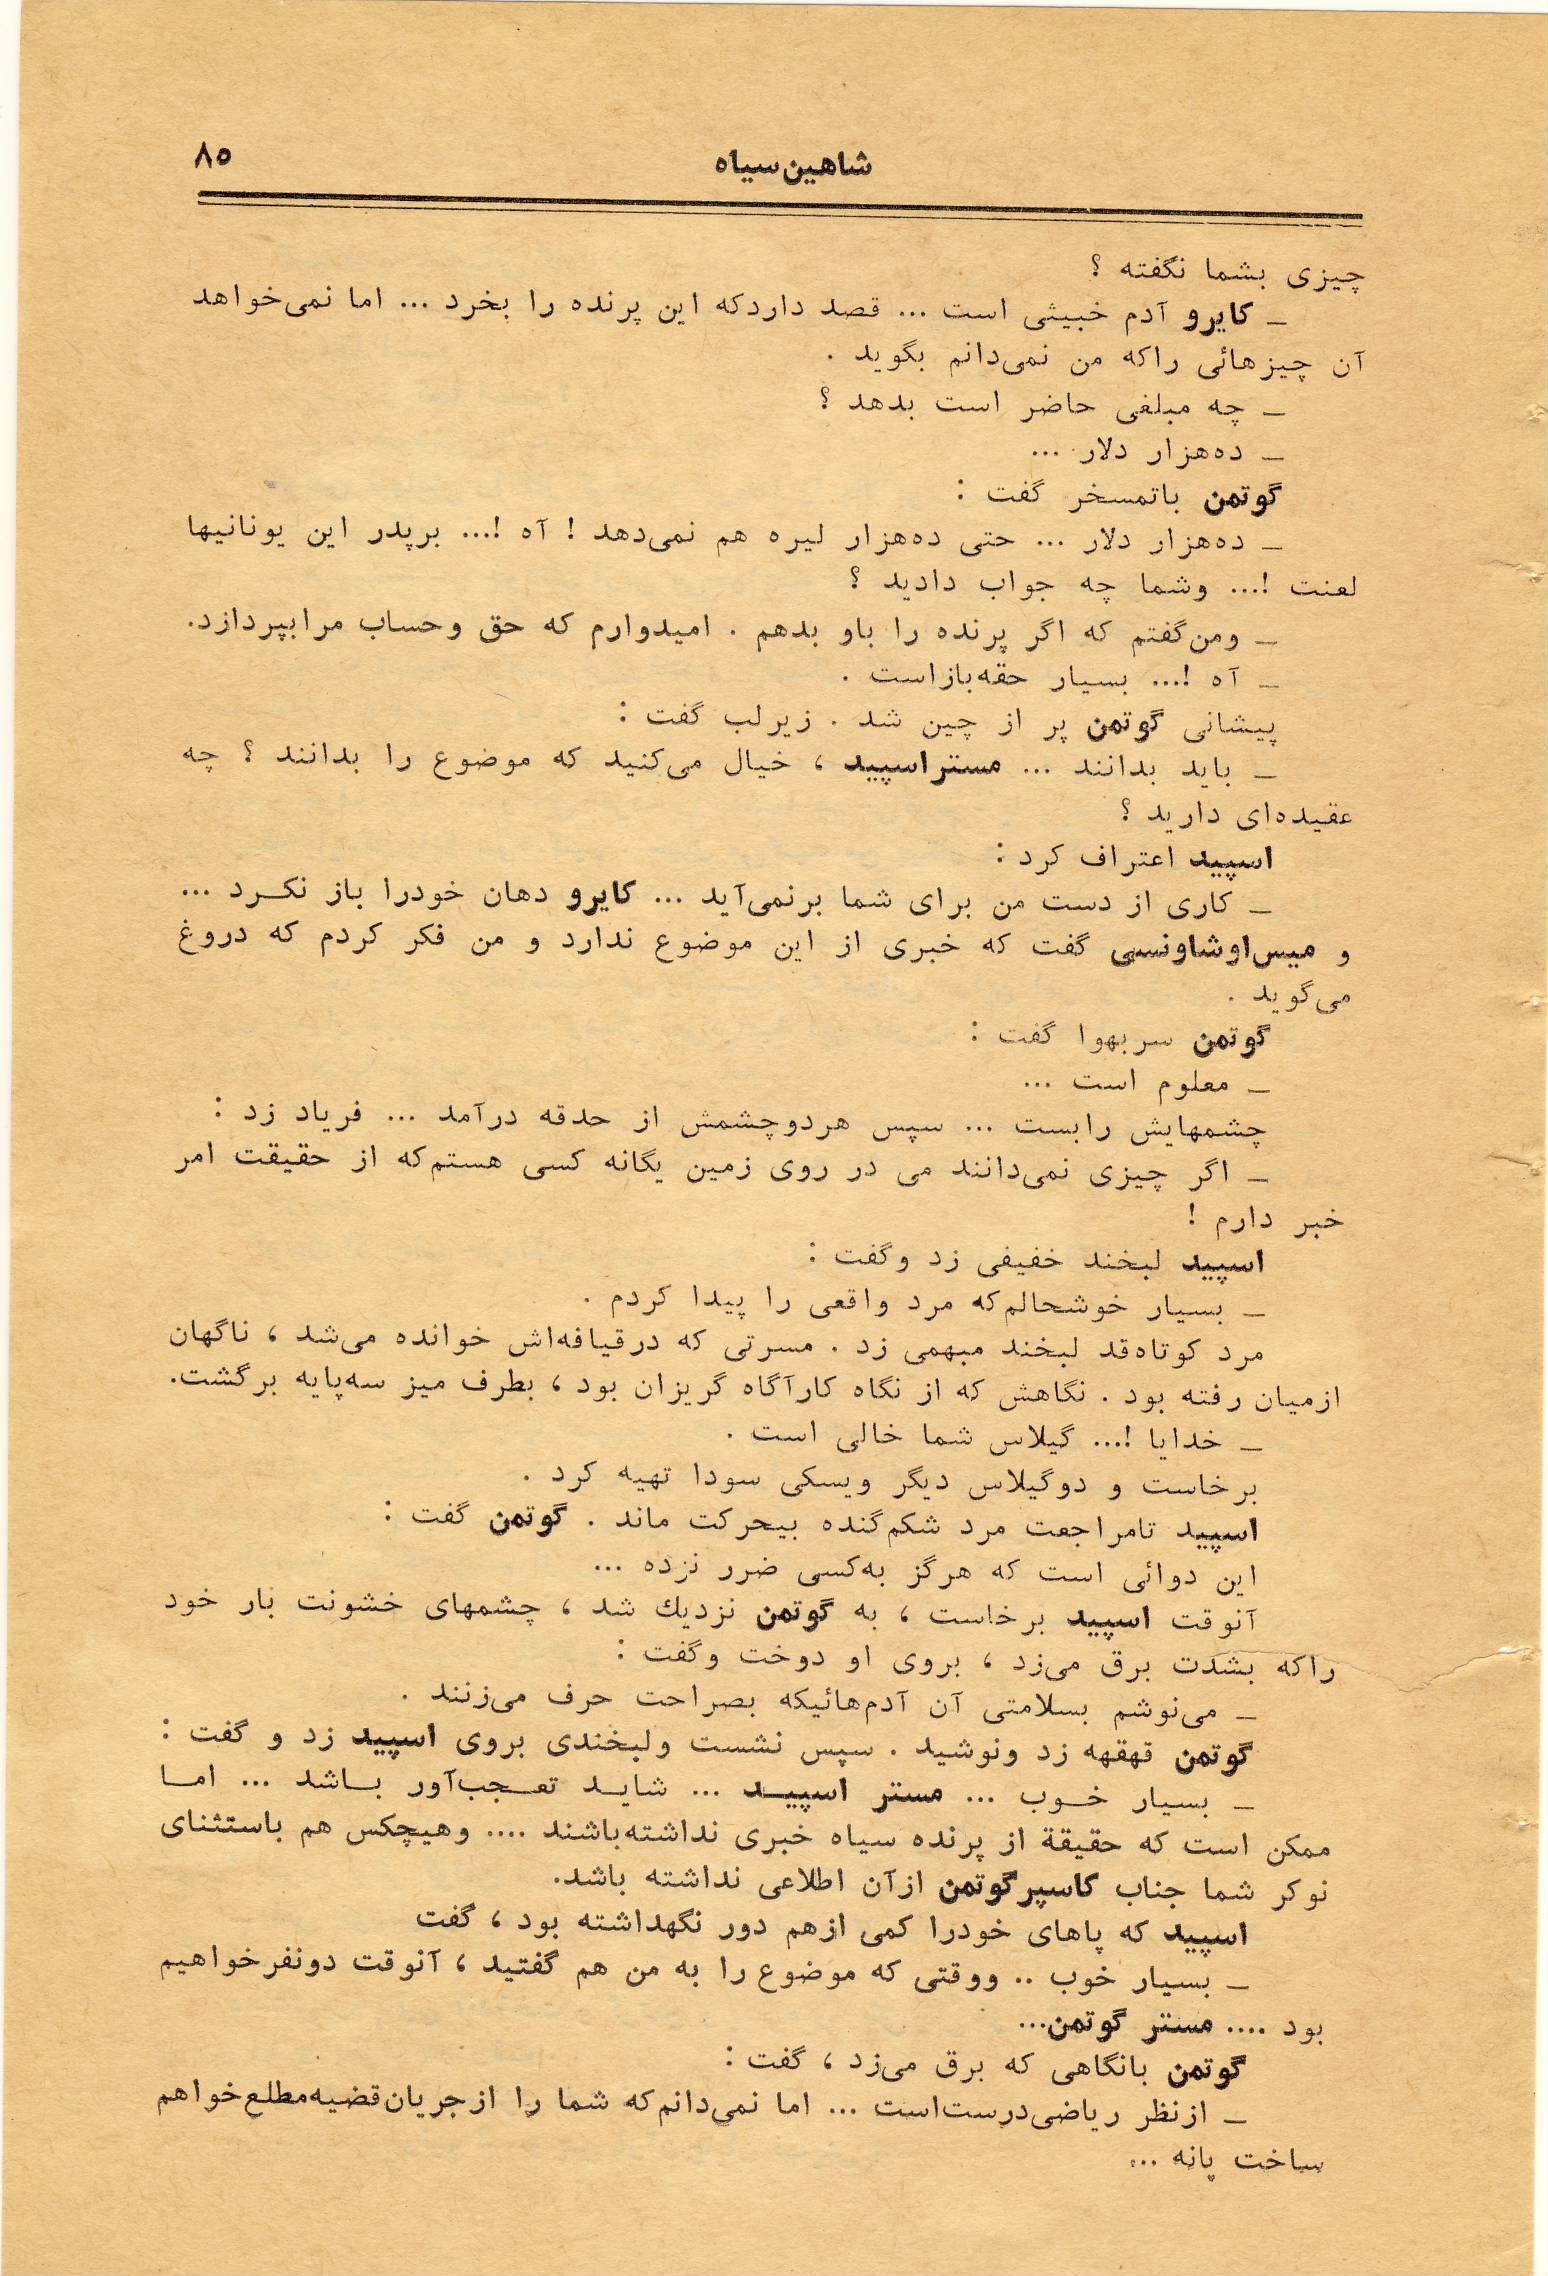 شاهین‌سیاه
۸۵
چیزی بشما نگفته ؟
ـ کایرو آدم خبیثی است ... قصد داردکه این پرنده را بخرد ... اما نمی‌خواهد
آن چیزهائی راکه من نمی‌دانم بگوید .
ـ چه مبلغی حاضر است بدهد ؟
ـ ده‌هزار دلار ...
گوتمن باتمسخر گفت :
ـ ده‌هزار دلار ... حتی ده‌هزار لیره هم نمی‌دهد ! آه !... برپدر این یونانیها
لعنت !... وشما چه جواب دادید ؟
ـ ومن‌گفتم که اگر پرنده را باو بدهم . امیدوارم که حق وحساب مرابپردازد.
ـ آه !... بسیار حقه‌بازاست .
پیشانی گوتمن پر از چین شد . زیرلب گفت :
ـ باید بدانند ... مستراسپید ، خیال می‌کنید که موضوع را بدانند ؟ چه
عقیده‌ای دارید ؟
اسپید اعتراف کرد :
ـ کاری از دست من برای شما برنمی‌آید ... کایرو دهان خودرا باز نکرد ...
و میس‌اوشاونسی گفت که خبری از این موضوع ندارد و من فکر کردم که دروغ
می‌گوید .
گوتمن سربهوا گفت :
ـ معلوم است ...
چشمهایش رابست ... سپس هردوچشمش از حدقه درآمد ... فریاد زد :
ـ اگر چیزی نمی‌دانند می در روی زمین یگانه کسی هستم‌که از حقیقت امر
خبر دارم !
اسپید لبخند خفیفی زد وگفت :
ـ بسیار خوشحالم‌که مرد واقعی را پیدا کردم .
مرد کوتاه‌قد لبخند مبهمی زد . مسرتی که درقیافه‌اش خوانده می‌شد ، ناگهان
ازمیان رفته بود . نگاهش که از نگاه کارآگاه گریزان بود ، بطرف میز سه‌پایه برگشت.
ـ خدایا !... گیلاس شما خالی است .
برخاست و دوگیلاس دیگر ویسکی سودا تهیه کرد .
اسپید تامراجعت مرد شکم‌گنده بیحرکت ماند . گوتمن گفت :
این دوائی است که هرگز به‌کسی ضرر نزده ...
آنوقت اسپید برخاست ، به گوتمن نزدیك شد ، چشمهای خشونت بار خود
راکه بشدت برق می‌زد ، بروی او دوخت وگفت :
ـ می‌نوشم بسلامتی آن آدم‌هائیکه بصراحت حرف می‌زنند .
گوتمن قهقهه زد ونوشید . سپس نشست ولبخندی بروی اسپید زد و گفت :
ـ بسیار خوب ... مستر اسپید ... شاید تعجب‌آور باشد ... اما
ممکن است که حقیقة از پرنده سیاه خبری نداشته‌باشند .... وهیچکس هم باستثنای
نوکر شما جناب کاسپرگوتمن ازآن اطلاعی نداشته باشد.
اسپید که پاهای خودرا کمی ازهم دور نگهداشته بود ، گفت
ـ بسیار خوب .. ووقتی که موضوع را به من هم گفتید ، آنوقت دونفرخواهیم
بود .... مستر گوتمن...
گوتمن بانگاهی که برق می‌زد ، گفت :
ـ ازنظر ریاضی‌درست‌است ... اما نمی‌دانم‌که شما را ازجریان‌قضیه‌مطلع‌خواهم
ساخت یانه ...